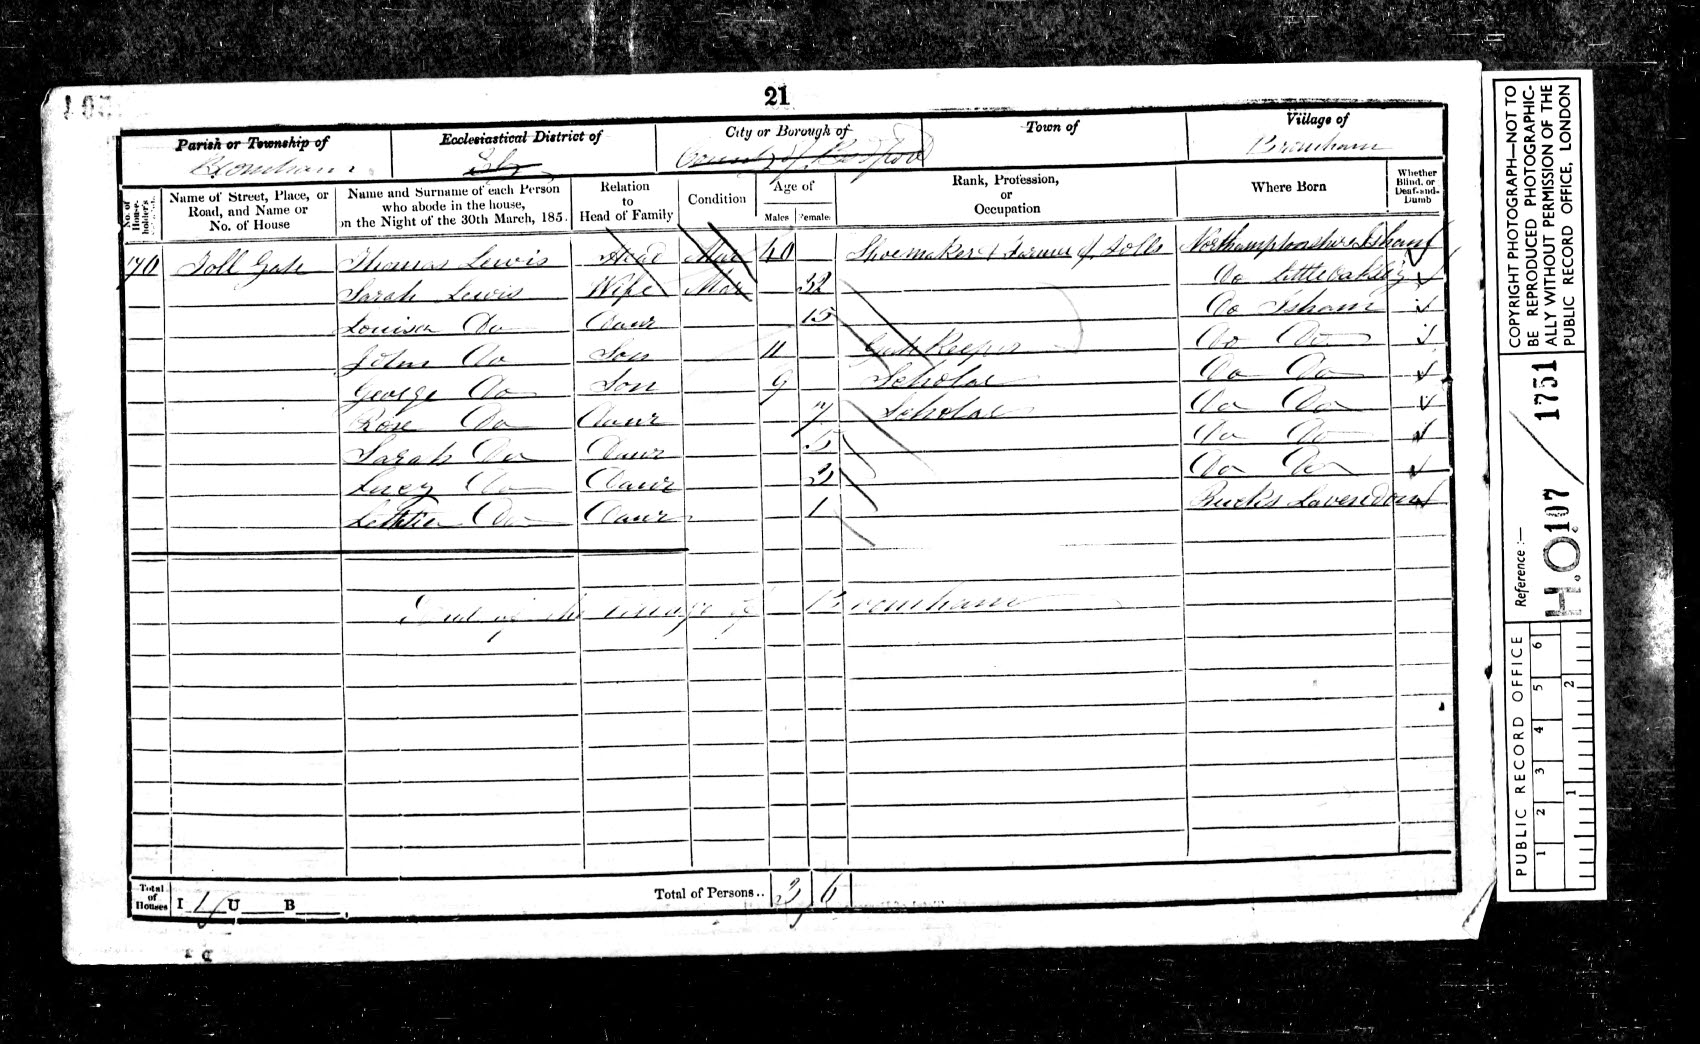 21
Parish or Township of
Bromham
Ecclesiastical District of
City or Borough of
County of Bedford
Town of
Village of
Bromham
No. of House-holder's
Name of Street, Place, or Road, and Name or No. of House
Name and Surname of each Person who abode in the house, on the Night of the 30th March, 185
Relation to Head of Family
Condition
Age of
Males
Females
Rank, Profession, or Occupation
Where Born
Whether Blind, or Deaf-and-Dumb
70 Toll Gate Thomas Lewis Head Mar 40 Shoemaker & Farmer of Tolls Northamptonshire Isham
Sarah Lewis Wife Mar 32 Do Little Oakley
Louisa Do Daur 15 Do Isham
John Do Son 11 Gate Keeper Do Do
George Do Son 9 Scholar Do Do
Rose Do Daur 7 Scholar Do Do
Sarah Do Daur 5 Do Do
Lucy Do Daur 3 Do Do
Letitia Do Daur 1 Bucks Lavendon
End of the Village of Bromham
Total of Houses I U B
Total of Persons.. 3 6
COPYRIGHT PHOTOGRAPH—NOT TO
BE REPRODUCED PHOTOGRAPHIC-
ALLY WITHOUT PERMISSION OF THE
PUBLIC RECORD OFFICE, LONDON
Reference :—
H.O. 107 / 1751
PUBLIC RECORD OFFICE
1 2 3 4 5 6
1 2